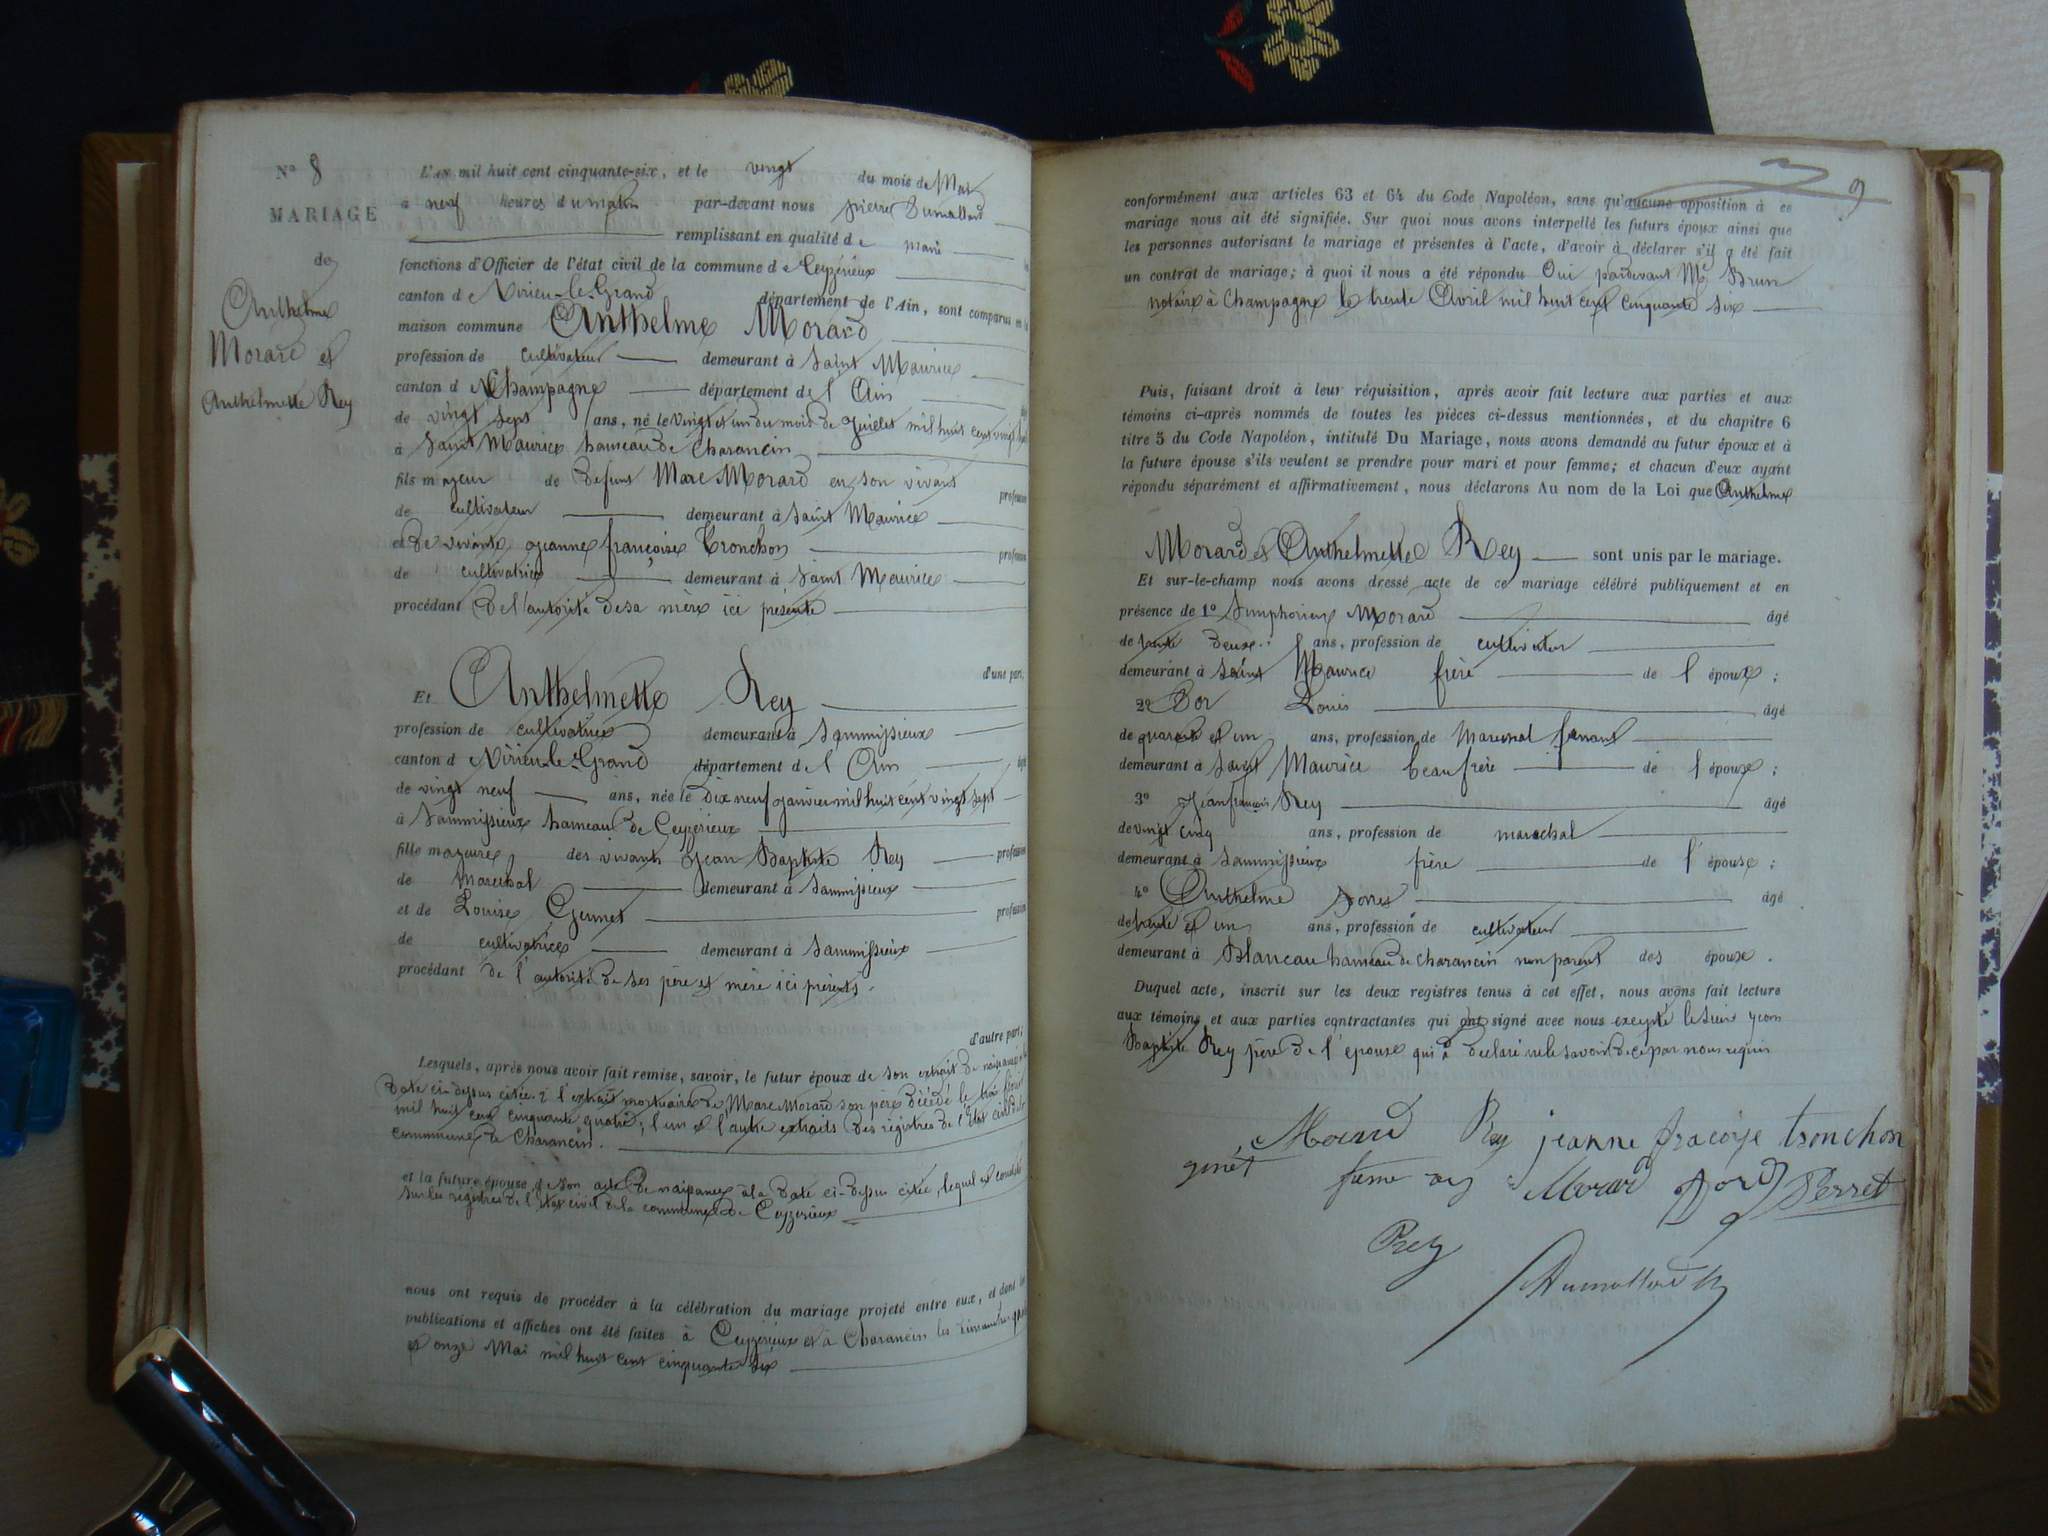 No 8
MARIAGE
de
Anthelme
Morard et
Anthelmette Rey
L'AN mil huit cent cinquante-six, et le vingt du mois de Mai
à neuf heures du matin par-devant nous pierre Dumollard
remplissant en qualité de maire
fonctions d'Officier de l'état civil de la commune de Ceyzérieux
canton de Virieu-le-Grand département de l'Ain, sont comparus en la
maison commune Anthelme Morard
profession de cultivateur demeurant à Saint Maurice
canton de Champagne département de l'Ain
de vingt sept ans, né le vingt et un du mois de Juillet mil huit cent vingt huit
à Saint Maurice hameau de Charancin
fils majeur de Defunt Marc Morard en son vivant profession
de cultivateur demeurant à Saint Maurice
et De vivante Jeanne françoise Tronchon profession
de cultivatrice demeurant à Saint Maurice
procédant De l'autorité de sa mère ici présente
d'une part;
Et Anthelmette Rey
profession de cultivatrice demeurant à Sammissieux
canton d Virieu-le-Grand département de l'Ain âgée
de vingt neuf ans, née le Dix neuf Janvier mil huit cent vingt sept
à Sammissieux hameau de Ceyzérieux
fille majeure des vivants Jean Baptiste Rey profession
de Marechal demeurant à Sammissieux
et de Louise Genet profession
de cultivatrice demeurant à Sammissieux
procédant de l'autorité de ses père et mère ici présents.
d'autre part;
Lesquels, après nous avoir fait remise, savoir, le futur époux de son extrait de naissance à la
Date ci-dessus citée; 2° l'extrait mortuaire de Marc Morard son père décédé le trois février
mil huit cent cinquante quatre; l'un et l'autre extraits des registres de l'Etat civil de la
commune de Charancin.
et la future épouse de son acte De naissance à la Date ci-dessus citée, lequel est constaté
sur les registres de l'Etat civil de la commune de Ceyzérieux
nous ont requis de procéder à la célébration du mariage projeté entre eux, et dont les
publications et affiches ont été faites à Ceyzérieux et à Charancin les dimanches quatre
et onze Mai mil huit cent cinquante six
9
conformément aux articles 63 et 64 du Code Napoléon, sans qu'aucune opposition à ce
mariage nous ait été signifiée. Sur quoi nous avons interpellé les futurs époux ainsi que
les personnes autorisant le mariage et présentes à l'acte, d'avoir à déclarer s'il a été fait
un contrat de mariage; à quoi il nous a été répondu Oui pardevant Me Brun
notaire à Champagne le trente Avril mil huit cent cinquante six
Puis, faisant droit à leur réquisition, après avoir fait lecture aux parties et aux
témoins ci-après nommés de toutes les pièces ci-dessus mentionnées, et du chapitre 6
titre 5 du Code Napoléon, intitulé Du Mariage, nous avons demandé au futur époux et à
la future épouse s'ils veulent se prendre pour mari et pour femme; et chacun d'eux ayant
répondu séparément et affirmativement, nous déclarons Au nom de la Loi que Anthelme
Morard et Anthelmette Rey sont unis par le mariage.
Et sur-le-champ nous avons dressé acte de ce mariage célébré publiquement et en
présence de 1° Simphorien Morard âgé
de trente deux ans, profession de cultivateur
demeurant à Saint Maurice frère de l'époux;
2° Dor Louis âgé
de quarante et un ans, profession de Marechal ferrant
demeurant à Saint Maurice beaufrère de l'époux;
3° Jeanfrançois Rey âgé
de vingt cinq ans, profession de marechal
demeurant à Sammissieux frère de l'épouse;
4° Anthelme âgé
de trente et un ans, profession de cultivateur
demeurant à Blancau hameau de Charancin non parent des époux.
Duquel acte, inscrit sur les deux registres tenus à cet effet, nous avons fait lecture
aux témoins et aux parties contractantes qui ont signé avec nous excepté le sieur Jean
Baptiste Rey père De l'epouse qui a declaré ne le savoir de ce par nous requis
Morard Rey jeanne fracoise tronchon
genét fame rey Morard Dord Perret
Rey
Dumollard